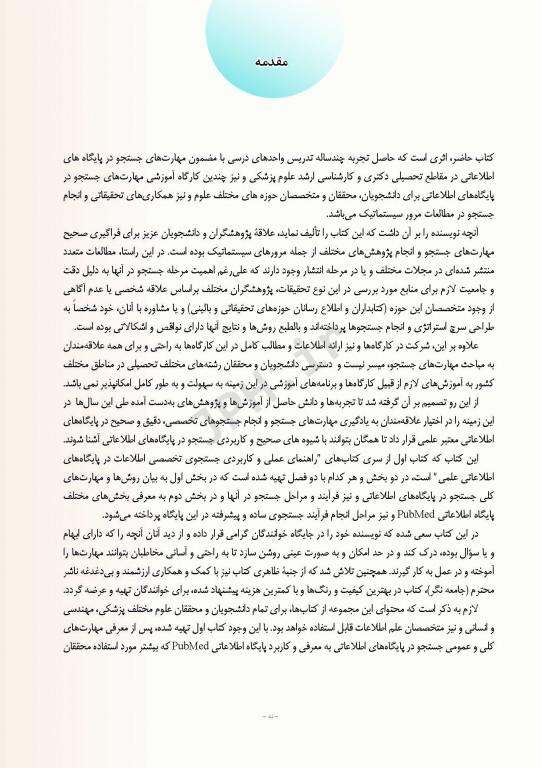 مقدمه
کتاب حاضر، اثری است که حاصل تجربه چندساله تدریس واحدهای درسی با مضمون مهارت‌های جستجو در پایگاه های
اطلاعاتی در مقاطع تحصیلی دکتری و کارشناسی ارشد علوم پزشکی و نیز چندین کارگاه آموزشی مهارت‌های جستجو در
پایگاه‌های اطلاعاتی برای دانشجویان، محققان و متخصصان حوزه های مختلف علوم و نیز همکاری‌های تحقیقاتی و انجام
جستجو در مطالعات مرور سیستماتیک می‌باشد.
آنچه نویسنده را بر آن داشت که این کتاب را تألیف نماید، علاقهٔ پژوهشگران و دانشجویان عزیز برای فراگیری صحیح
مهارت‌های جستجو و انجام پژوهش‌های مختلف از جمله مرورهای سیستماتیک بوده است. در این راستا، مطالعات متعدد
منتشر شده‌ای در مجلات مختلف و یا در مرحله انتشار وجود دارند که علی‌رغم اهمیت مرحله جستجو در آنها به دلیل دقت
و جامعیت لازم برای منابع مورد بررسی در این نوع تحقیقات، پژوهشگران مختلف براساس علاقه شخصی یا عدم آگاهی
از وجود متخصصان این حوزه (کتابداران و اطلاع رسانان حوزه‌های تحقیقاتی و بالینی) و یا مشاوره با آنان، خود شخصاً به
طراحی سرچ استراتژی و انجام جستجوها پرداخته‌اند و بالطبع روش‌ها و نتایج آنها دارای نواقص و اشکالاتی بوده است.
علاوه بر این، شرکت در کارگاه‌ها و نیز ارائه اطلاعات و مطالب کامل در این کارگاه‌ها به راحتی و برای همه علاقه‌مندان
به مباحث مهارت‌های جستجو، میسر نیست و دسترسی دانشجویان و محققان رشته‌های مختلف تحصیلی در مناطق مختلف
کشور به آموزش‌های لازم از قبیل کارگاه‌ها و برنامه‌های آموزشی در این زمینه به سهولت و به طور کامل امکانپذیر نمی باشد.
از این رو تصمیم بر آن گرفته شد تا تجربه‌ها و دانش حاصل از آموزش‌ها و پژوهش‌های به‌دست آمده طی این سال‌ها در
این زمینه را در اختیار علاقه‌مندان به یادگیری مهارت‌های جستجو و انجام جستجوهای تخصصی، دقیق و صحیح در پایگاه‌های
اطلاعاتی معتبر علمی قرار داد تا همگان بتوانند با شیوه های صحیح و کاربردی جستجو در پایگاه‌های اطلاعاتی آشنا شوند.
این کتاب که کتاب اول از سری کتاب‌های "راهنمای عملی و کاربردی جستجوی تخصصی اطلاعات در پایگاه‌های
اطلاعاتی علمی" است، در دو بخش و هر کدام با دو فصل تهیه شده است که در بخش اول به بیان روش‌ها و مهارت‌های
کلی جستجو در پایگاه‌های اطلاعاتی و نیز فرآیند و مراحل جستجو در آنها و در بخش دوم به معرفی بخش‌های مختلف
پایگاه اطلاعاتی PubMed و نیز مراحل انجام فرآیند جستجوی ساده و پیشرفته در این پایگاه پرداخته می‌شود.
در این کتاب سعی شده که نویسنده خود را در جایگاه خوانندگان گرامی قرار داده و از دید آنان آنچه را که دارای ابهام
و یا سؤال بوده، درک کند و در حد امکان و به صورت عینی روشن سازد تا به راحتی و آسانی مخاطبان بتوانند مهارت‌ها را
آموخته و در عمل به کار گیرند. همچنین تلاش شد که از جنبهٔ ظاهری کتاب نیز با کمک و همکاری ارزشمند و بی‌دغدغه ناشر
محترم (جامعه نگر)، کتاب در بهترین کیفیت و رنگ‌ها و با کمترین هزینه پیشنهاد شده، برای خوانندگان تهیه و عرضه گردد.
لازم به ذکر است که محتوای این مجموعه از کتاب‌ها، برای تمام دانشجویان و محققان علوم مختلف پزشکی، مهندسی
و انسانی و نیز متخصصان علم اطلاعات قابل استفاده خواهد بود. با این وجود کتاب اول تهیه شده، پس از معرفی مهارت‌های
کلی و عمومی جستجو در پایگاه‌های اطلاعاتی به معرفی و کاربرد پایگاه اطلاعاتی PubMed که بیشتر مورد استفاده محققان